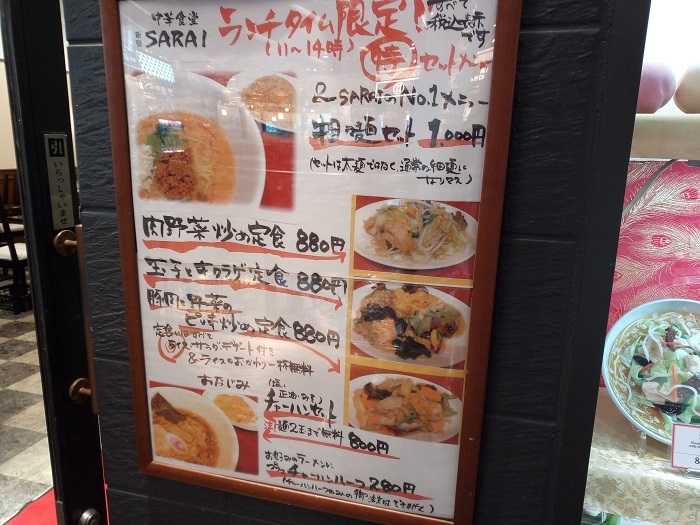 中華食堂
SARAI
ランチタイム限定!
(11~14時)
すべて
税込表示
です
特 セットメニュー
& SARAIのNo.1メニュー
担々麺セット 1,000円
(セットは太麺ではなく、通常の細麺に
なります)
引
いらっしゃいませ
肉野菜炒め定食 880円
玉子とキクラゲ定食 880円
豚肉と野菜の
ピリ辛炒め定食 880円
定食にはすべて
ライス・サラダ・デザート付き
&ライスのおかわり一杯無料
おなじみ
チャーハンセット
麺2玉まで無料 800円
お好みのラーメンに
プラス チャーハンハーフ 280円
(チャーハンハーフのみの御注文はできません)
8